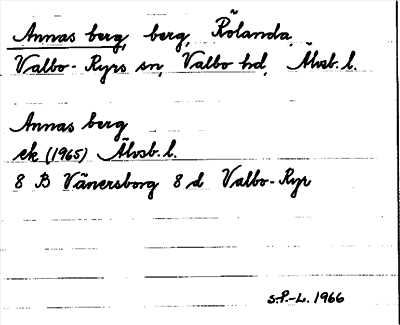 Annas berg, berg, Rölanda
Valbo-Ryrs sn, Valbo hd, Älvsb. l.
Annas berg
ek (1965) Älvsb. l.
8 B Vänersborg 8 d Valbo-Ryr
S.P.-L. 1966